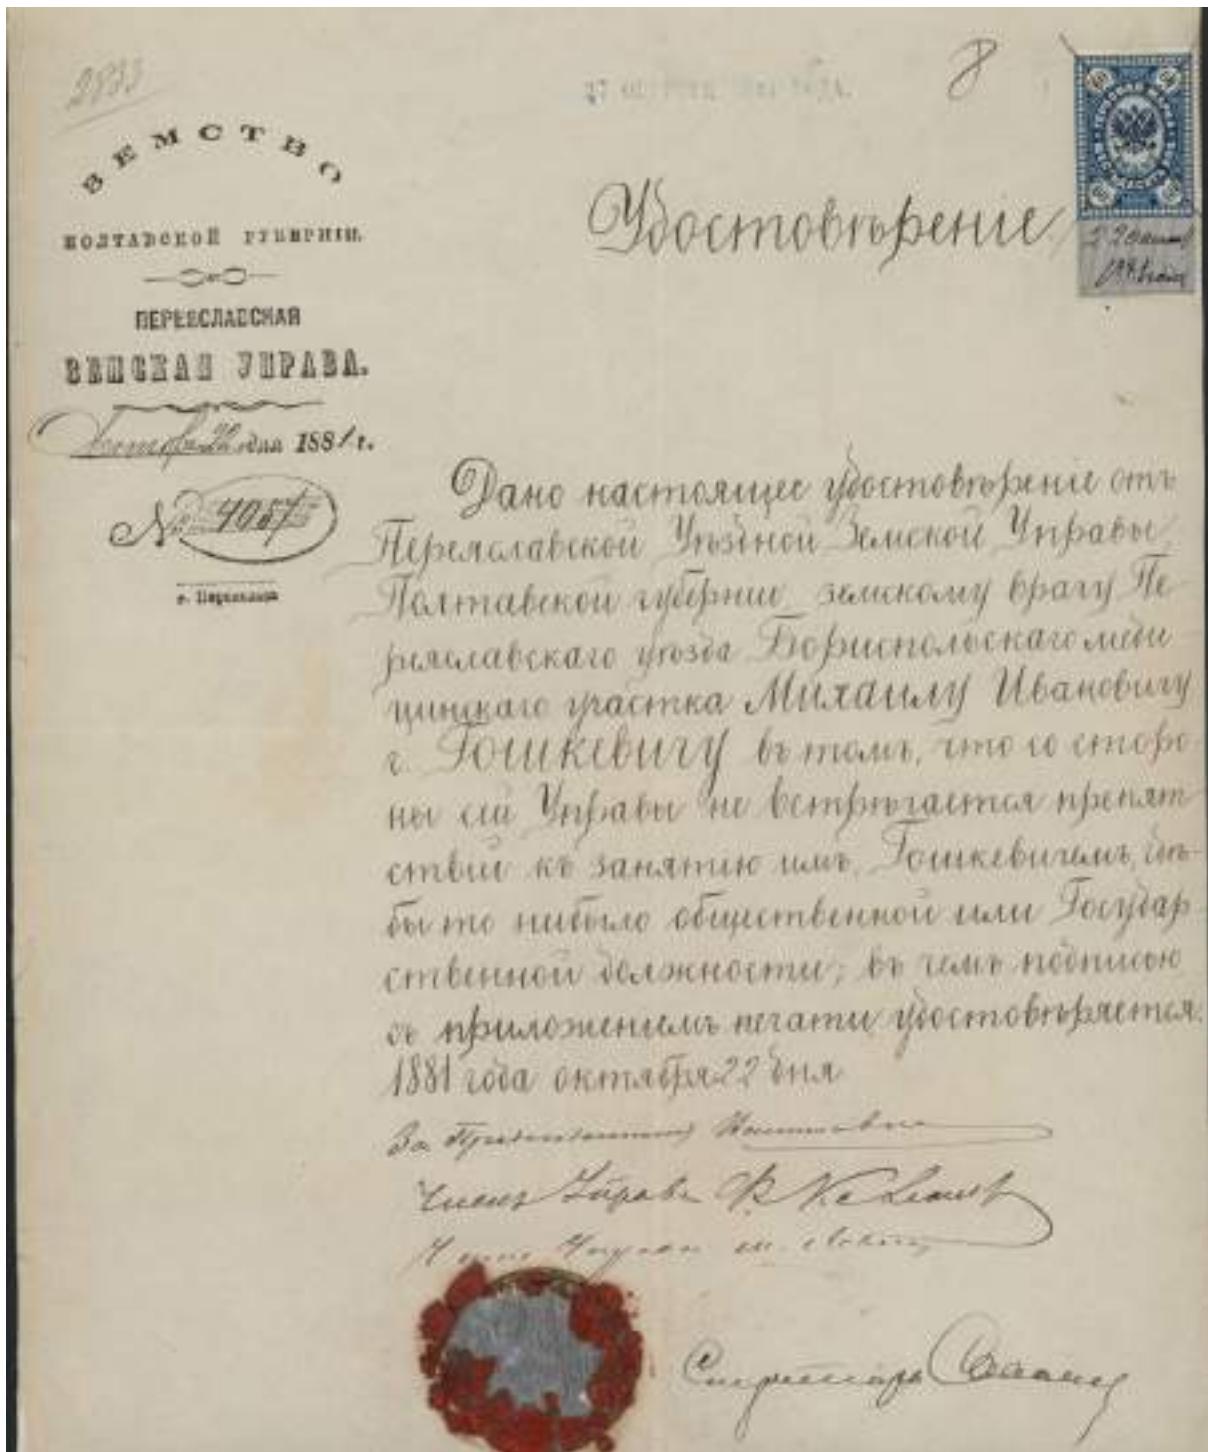 2833
8
ЗЕМСТВО
ПОЛТАВСКОЙ ГУБЕРНІИ.
ПЕРЕЯСЛАВСКАЯ
ЗЕМСКАЯ УПРАВА.
Октября 22 дня 1881 г.
№ 4057
г. Переяславъ
Удостовѣреніе
Дано настоящее удостовѣреніе отъ
Переяславской Уѣздной Земской Управы,
Полтавской губерніи, земскому врачу Пе-
реяславскаго уѣзда Бориспольскаго меди
цинскаго участка Михаилу Ивановичу
г. Гошкевичу въ томъ, что со сторо-
ны сей Управы не встрѣчается препят
ствій къ занятію имъ, Гошкевичемъ,
бы то нибыло общественной или Государ-
ственной должности; въ чемъ подписью
съ приложеніемъ печати удостовѣряется.
1881 года октября 22 дня
За Предсѣдателя
Членъ Управы
Секретарь